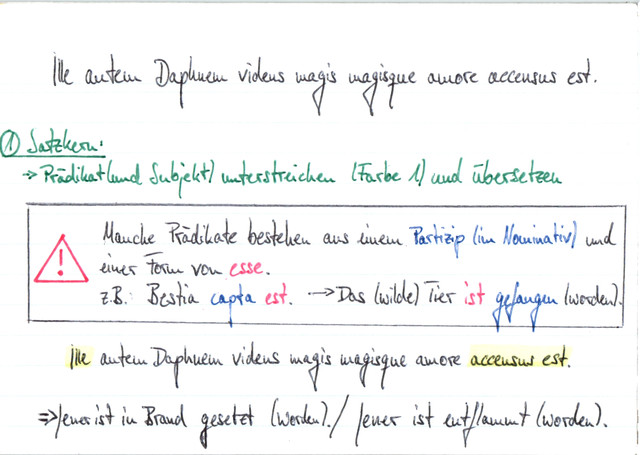 Ille autem Daphnem videns magis magisque amore accensus est.
① Satzkern:
→ Prädikat (und Subjekt) unterstreichen (Farbe 1) und übersetzen
Manche Prädikate bestehen aus einem Partizip (im Nominativ) und
einer Form von esse.
z.B.: Bestia capta est. → Das (wilde) Tier ist gefangen (worden).
Ille autem Daphnem videns magis magisque amore accensus est.
⇒ Jener ist in Brand gesetzt (worden). / Jener ist entflammt (worden).